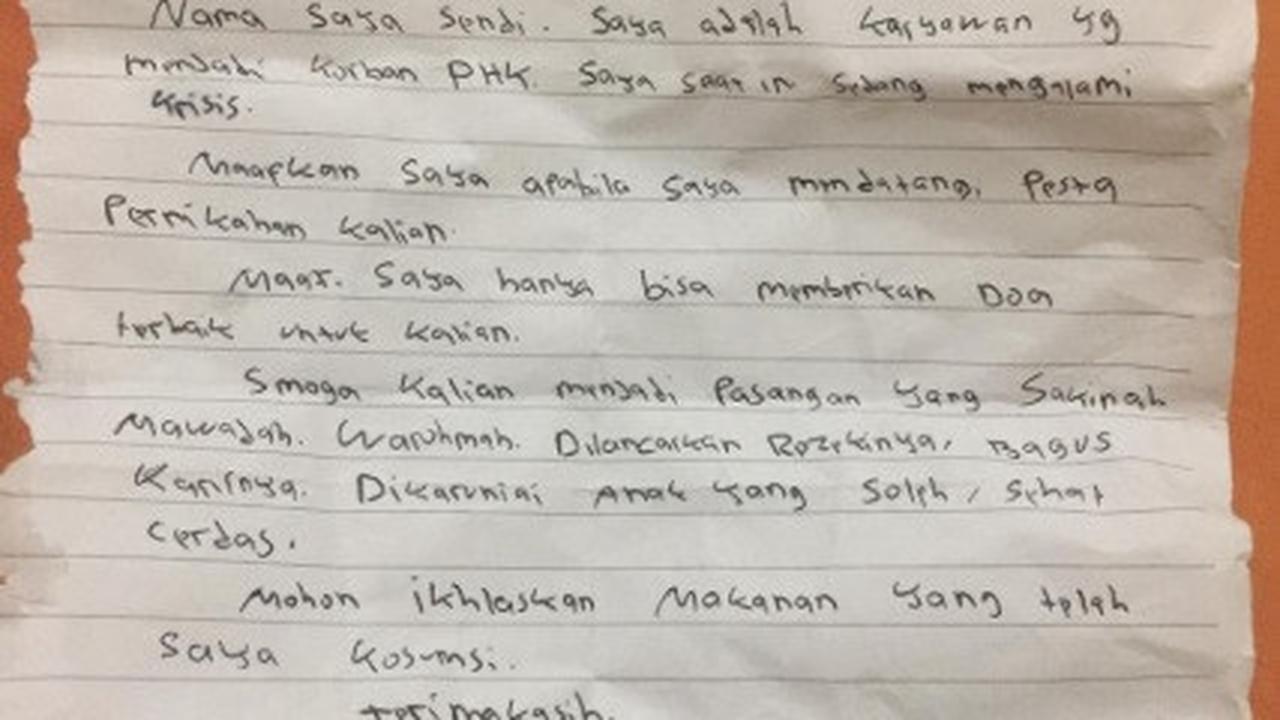 Nama saya Sendi. Saya adalah karyawan yg
menjadi korban PHK. Saya saat ini sedang mengalami
krisis.
Maafkan saya apabila saya mendatangi Pesta
Pernikahan kalian.
Maaf. Saya hanya bisa memberikan Doa
terbaik untuk kalian.
Smoga kalian menjadi Pasangan yang Sakinah
Mawadah. Warohmah. Dilancarkan Rezekinya, Bagus
Karirnya. Dikaruniai Anak yang Soleh, Sehat
Cerdas.
Mohon ikhlaskan Makanan yang telah
saya kosumsi.
terimakasih.